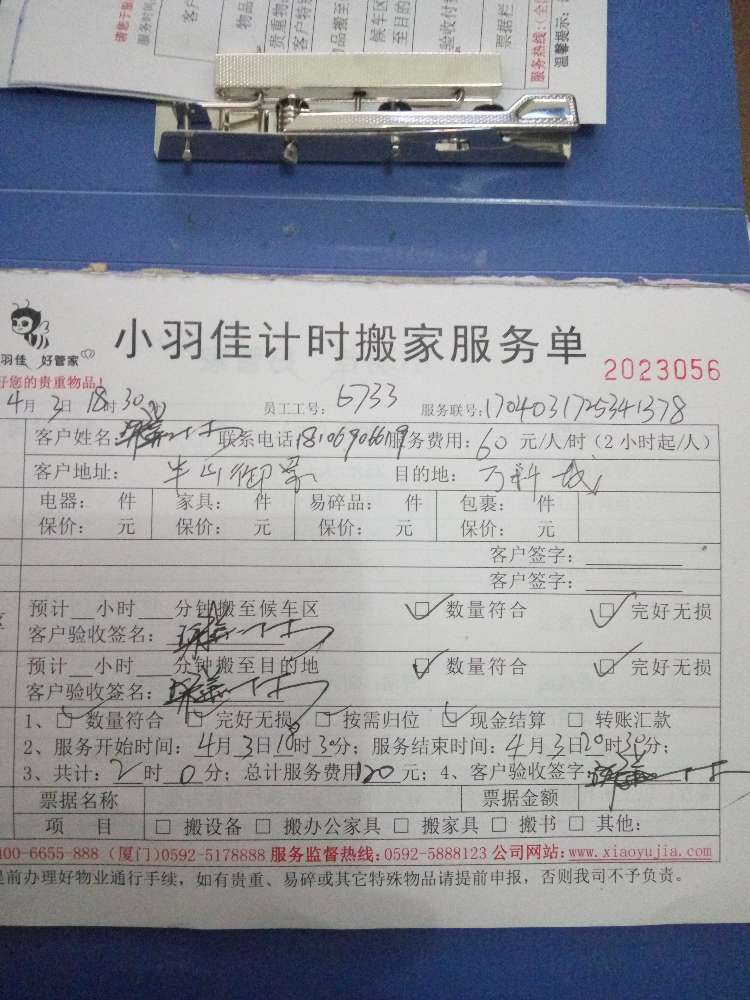 请您于服
服务时间
客户
物品
贵重物
客户特殊
物品搬至
候车区
至目的
验收付
票据栏
服务热线:(全国
温馨提示:
小羽佳计时搬家服务单
羽佳 好管家
2023056
好您的贵重物品!
4月3日18时30分 员工工号: 6733 服务联号:1704031725341378
客户姓名: 联系电话: 服务费用:60元/人/时(2小时起/人)
客户地址: 半山御景 目的地: 万科城
电器: 件 家具: 件 易碎品: 件 包裹: 件
保价: 元 保价: 元 保价: 元 保价: 元
客户签字:
客户签字:
预计__小时__分钟搬至候车区 ☑数量符合 ☑完好无损
客户验收签名:
预计__小时__分钟搬至目的地 ☑数量符合 ☑完好无损
客户验收签名:
1、☑数量符合 ☑完好无损 ☑按需归位 ☑现金结算 □转账汇款
2、服务开始时间:4月3日18时30分;服务结束时间:4月3日20时30分;
3、共计:2时0分;总计服务费用120元;4、客户验收签字:
票据名称 票据金额
项 目 □搬设备 □搬办公家具 □搬家具 □搬书 □其他:
00-6655-888(厦门)0592-5178888 服务监督热线:0592-5888123 公司网站:www.xiaoyujia.com
提前办理好物业通行手续,如有贵重、易碎或其它特殊物品请提前申报,否则我司不予负责。